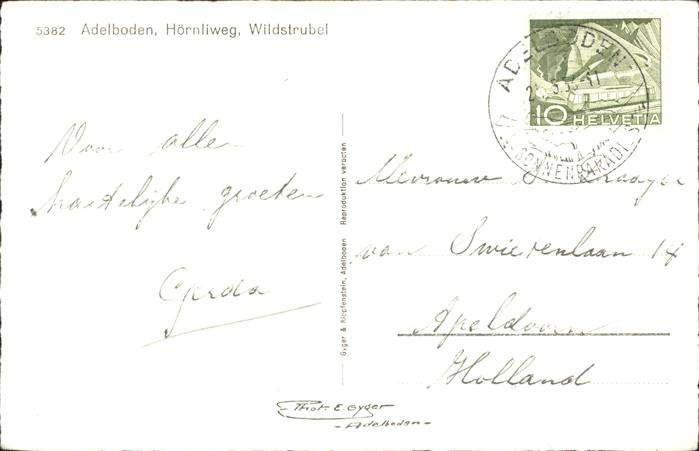 5382 Adelboden, Hörnliweg, Wildstrubel
ADELBODEN
SONNENPARADIES
10 HELVETIA
Voor allen
hartelijke groeten
Gerda
Gyger & Klopfenstein, Adelboden Reproduktion verboten
Mevrouw
van Swietenlaan 14
Apeldoorn
Holland
Phot. E. Gyger
- Adelboden -